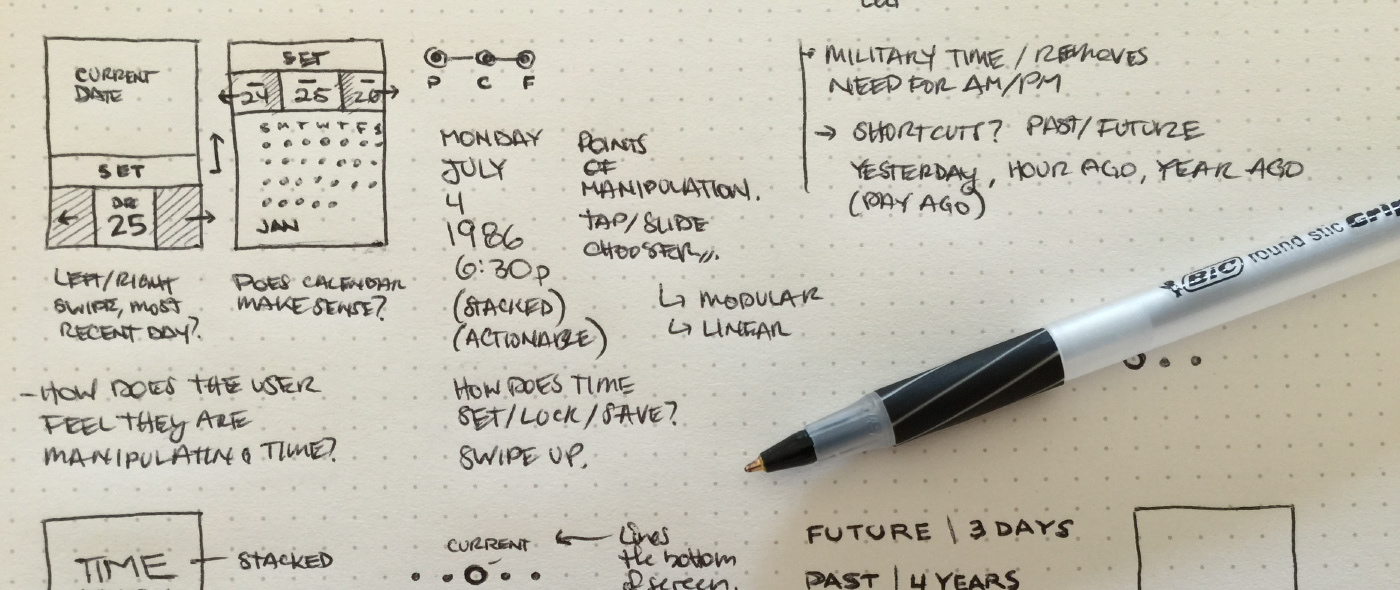 CURRENT
DATE
SET
DEC
25
LEFT/RIGHT
SWIPE, MOST
RECENT DAY?
SET
24 25 26
S M T W T F S
JAN
DOES CALENDAR
MAKE SENSE?
P C F
MONDAY
JULY
4
1986
6:30p
(STACKED)
(ACTIONABLE)
POINTS
OF
MANIPULATION.
TAP/SLIDE
CHOOSER
↳ MODULAR
↳ LINEAR
MILITARY TIME / REMOVES
NEED FOR AM/PM
→ SHORTCUTS? PAST/FUTURE
YESTERDAY, HOUR AGO, YEAR AGO
(DAY AGO)
BIC round stic Grip
- HOW DOES THE USER
FEEL THEY ARE
MANIPULATING TIME?
HOW DOES TIME
SET/LOCK/SAVE?
SWIPE UP.
TIME
STACKED
CURRENT
Lines
the bottom
of screen.
FUTURE | 3 DAYS
PAST | 4 YEARS